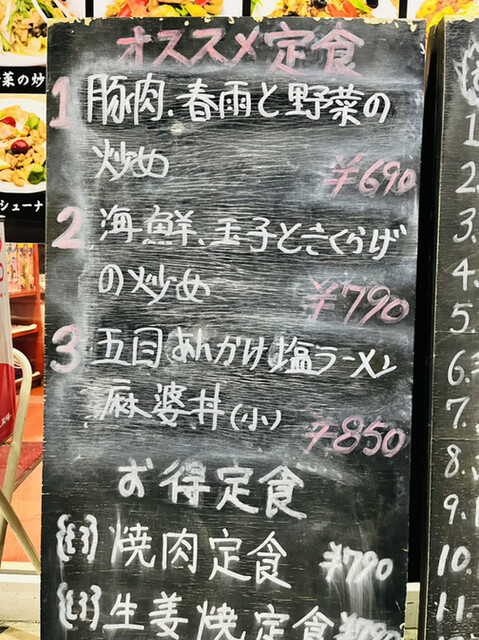 菜の炒
シューナ
オススメ定食
1 豚肉、春雨と野菜の
炒め ¥690
2 海鮮、玉子ときくらげ
の炒め ¥790
3 五目あんかけ塩ラーメン
麻婆丼(小) ¥850
お得定食
焼肉定食 ¥790
生姜焼定食
1
2.
3.
4.
5.
6.
7.
8.
9.
10.
11.